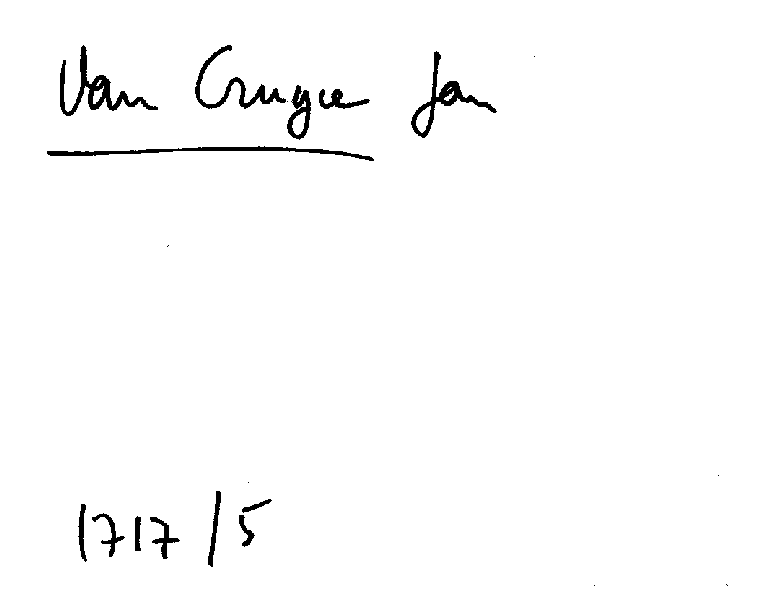 Van Cruyce Jan
1717/5